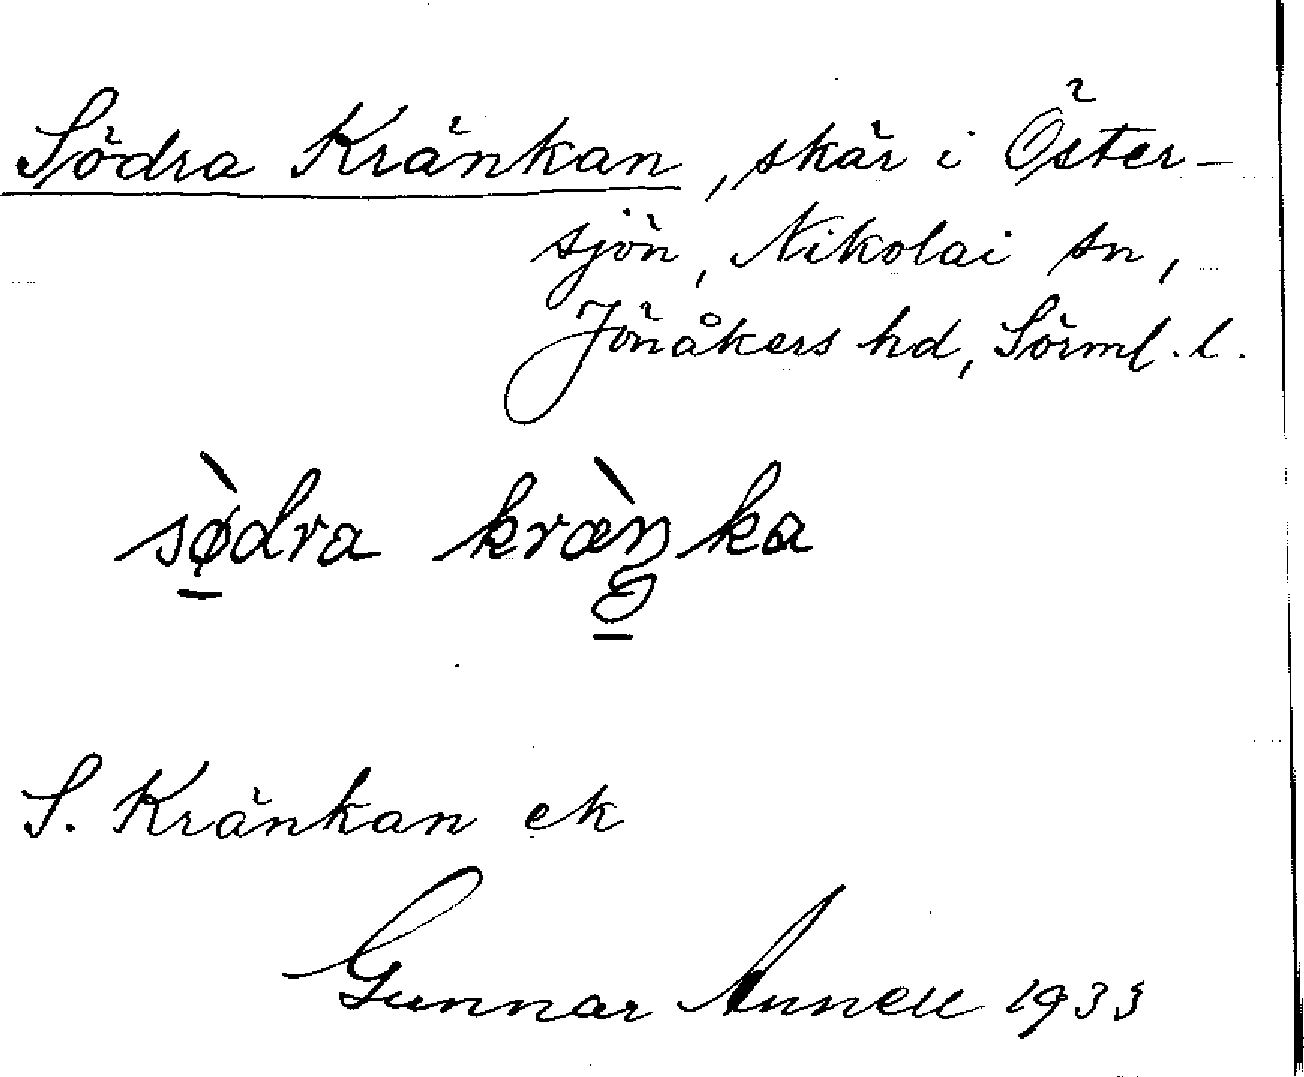 Södra Kränkan, skär i Öster-
sjön, Nikolai sn,
Jönåkers hd, Sörml. l.
sø̀dra kræ̀ŋka
S. Kränkan ek
Gunnar Annell 1933